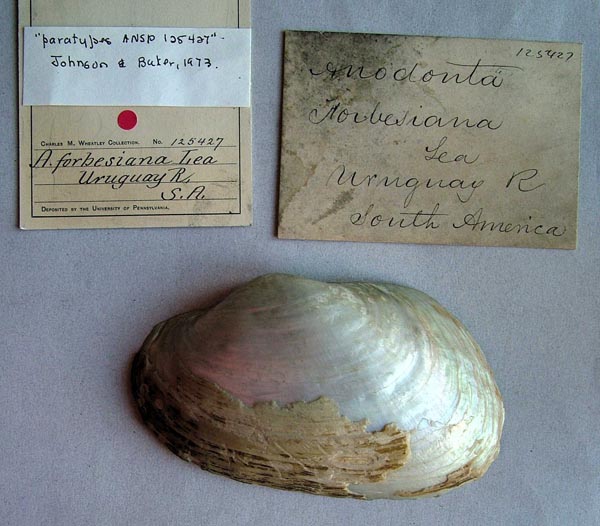 "paratypes ANSP 125427" -
Johnson & Baker, 1973.
CHARLES M. WHEATLEY COLLECTION. No. 125427
A. forbesiana Lea
Uruguay R,
S. A.
DEPOSITED BY THE UNIVERSITY OF PENNSYLVANIA.
125427
Anodonta
Forbesiana
Lea
Uruguay R
South America